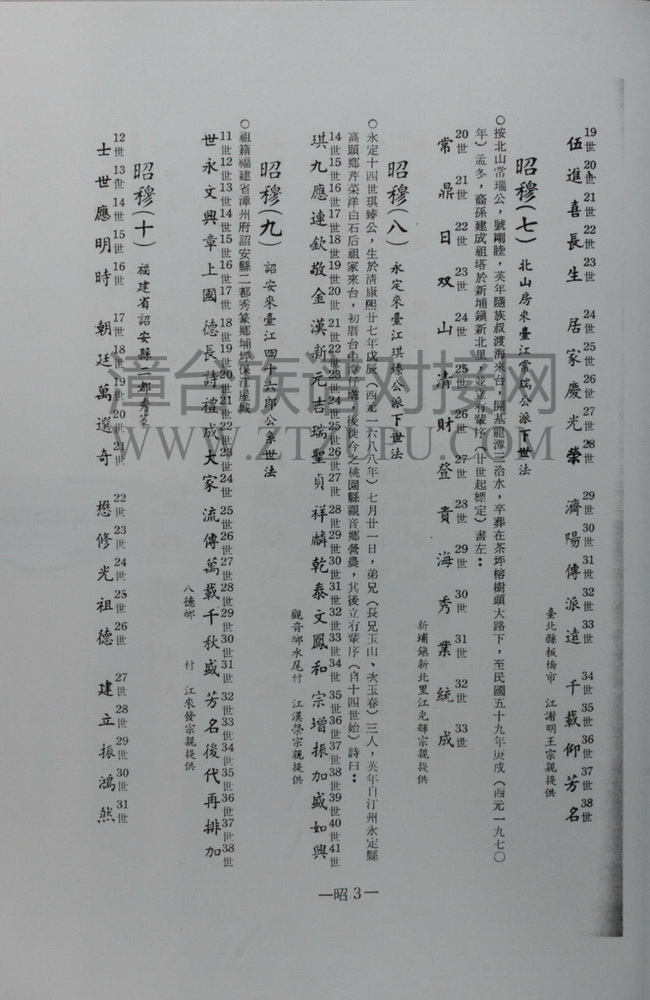 19世 20世 21世 22世 23世 24世 25世 26世 27世 28世 29世 30世 31世 32世 33世 34世 35世 36世 37世 38世
伍進喜長生 居家慶光榮 濟陽傳派遠 千載仰芳名
臺北縣板橋市 江謝明王宗親提供
昭穆(七) 北山房來臺江常瑞公派下世法
○按北山常瑞公，號剛睦，英年隨族叔渡海來台，開基龍潭三洽水，卒葬在茶坪榕樹頭大路下，至民國五十九年庚戌（西元一九七〇
年）孟冬，裔孫建成祖塔於新埔鎮新北里，並立有輩序（廿世起標定）書左：
20世 21世 22世 23世 24世 25世 26世 27世 28世 29世 30世 31世 32世 33世
常鼎日双山清財登貴海秀業統成
新埔鎮新北里江光輝宗親提供
昭穆(八) 永定來臺江琪臻公派下世法
○永定十四世琪臻公，生於清康熙廿七年戊辰（西元一六八八年）七月廿一日，弟兄（長兄玉山、次玉春）三人，英年自汀州永定縣
高頭鄉芹菜洋白石后祖家來台，初厝台中，後徙今之桃園縣觀音鄉營農，其後立有輩序（自十四世始）詩曰：
14世 15世 16世 17世 18世 19世 20世 21世 22世 23世 24世 25世 26世 27世 28世 29世 30世 31世 32世 33世 34世 35世 36世 37世 38世 39世 40世 41世
琪九應連欽敬金漢新元吉瑞聖貞祥麟乾泰文鳳和宗增振加盛如興
觀音鄉水尾村 江漢榮宗親提供
昭穆(九) 詔安來臺江四十六郎公系世法
○祖籍福建省漳州府詔安縣二都秀篆鄉埔坪保江屋城
11世 12世 13世 14世 15世 16世 17世 18世 19世 20世 21世 22世 23世 24世 25世 26世 27世 28世 29世 30世 31世 32世 33世 34世 35世 36世 37世 38世
世永文興章上國德長詩禮成大家流傳萬載千秋盛芳名後代再排加
八德鄉 村 江來發宗親提供
昭穆(十) 福建省詔安縣二都秀篆
12世 13世 14世 15世 16世 17世 18世 19世 20世 21世 22世 23世 24世 25世 26世 27世 28世 29世 30世 31世
士世應明時 朝廷萬選奇 懋修光祖德 建立振鴻然
—昭3—
漳台族谱对接网
WWW.ZTZUPU.COM